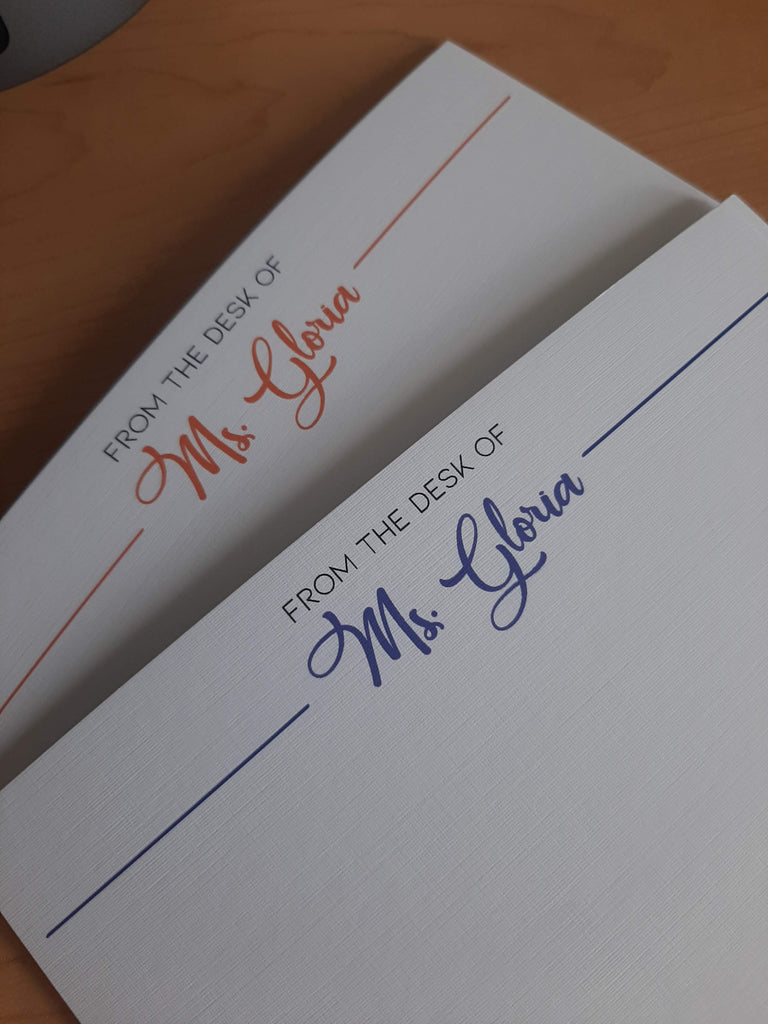 FROM THE DESK OF
Ms. Gloria
FROM THE DESK OF
Ms. Gloria